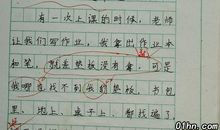 有一次上课的时候，老师
让我们写作业，我拿出作业本
和笔，就差垫板没有拿，可是
我哪也找不到我的垫板，书包
里、地上、桌子上，都找遍了
01hn.com